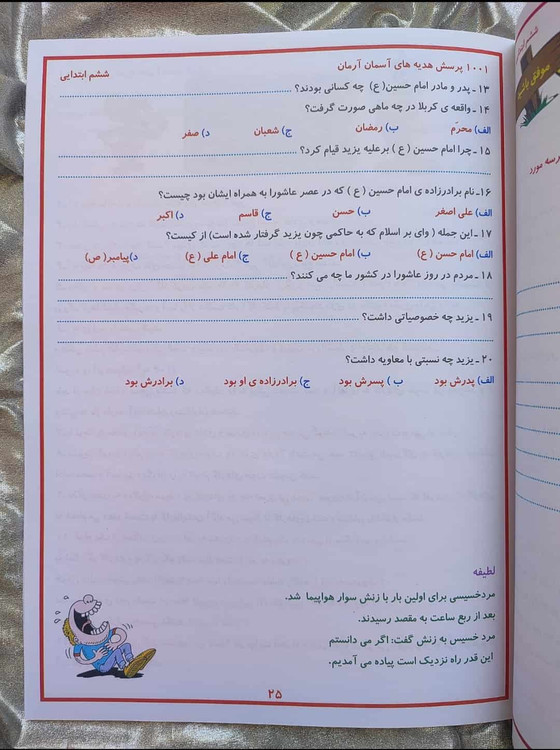 ۱۰۰۱ پرسش هدیه های آسمان آرمان
ششم ابتدایی
۱۳ ـ پدر و مادر امام حسین( ع ) چه کسانی بودند؟
۱۴ ـ واقعه ی کربلا در چه ماهی صورت گرفت؟
الف) محرّم ب) رمضان ج) شعبان د) صفر
۱۵ ـ چرا امام حسین ( ع ) برعلیه یزید قیام کرد؟
۱۶ـ نام برادرزاده ی امام حسین ( ع ) که در عصر عاشورا به همراه ایشان بود چیست؟
الف) علی اصغر ب) حسن ج) قاسم د) اکبر
۱۷ ـ این جمله ( وای بر اسلام که به حاکمی چون یزید گرفتار شده است) از کیست؟
الف) امام حسن ( ع ) ب) امام حسین ( ع ) ج) امام علی ( ع ) د)پیامبر( ص)
۱۸ ـ مردم در روز عاشورا در کشور ما چه می کنند؟
۱۹ ـ یزید چه خصوصیاتی داشت؟
۲۰ ـ یزید چه نسبتی با معاویه داشت؟
الف) پدرش بود ب ) پسرش بود ج) برادرزاده ی او بود د) برادرش بود
لطیفه
مردخسیسی برای اولین بار با زنش سوار هواپیما شد.
بعد از ربع ساعت به مقصد رسیدند.
مرد خسیس به زنش گفت: اگر می دانستم
این قدر راه نزدیک است پیاده می آمدیم.
۲۵